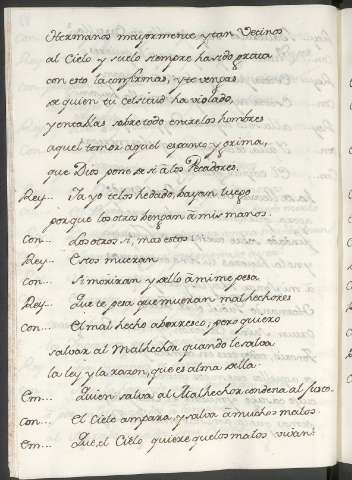 Hermanos mayormente y tan Vecinos
al Cielo y suelo siempre ha sido grata
con esto la confirmas, y te vengas
de quien tu celsitud ha violado,
y entablas sobre todo entre los hombres
aquel temor aquel espanto y grima,
que Dios pone de si â los Pecadores.
Rey... Ya yo te los he dado, vayan luego
porque los otros bengan â mis manos.
Con... Los otros si, mas estos:
Rey... Estos mueran
Con... Si moriran y dello â mi me pesa
Rey... Que te pesa que mueran malhechores
Con... El mal hecho aborresco, pero quiero
salvar al Malhechor quando le salva
la ley y la razon, que es alma della.
Em... Quien salva al Malhechor condena al justo.
Con... El Cielo ampara, y salva â muchos malos
Em... Que, el Cielo quiere que los malos vivan?